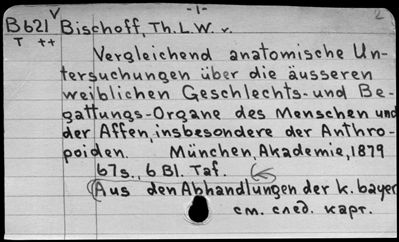 -1-
2
B621 V Bischoff, Th. L. W. v.
T ++
Vergleichend anatomische Un-
tersuchungen über die äusseren
weiblichen Geschlechts- und Be-
gattungs-Organe des Menschen und
der Affen, insbesondere der Anthro-
poiden. München, Akademie, 1879
67s., 6 Bl. Taf.
(Aus den Abhandlungen der k. bayer
см. след. карт.